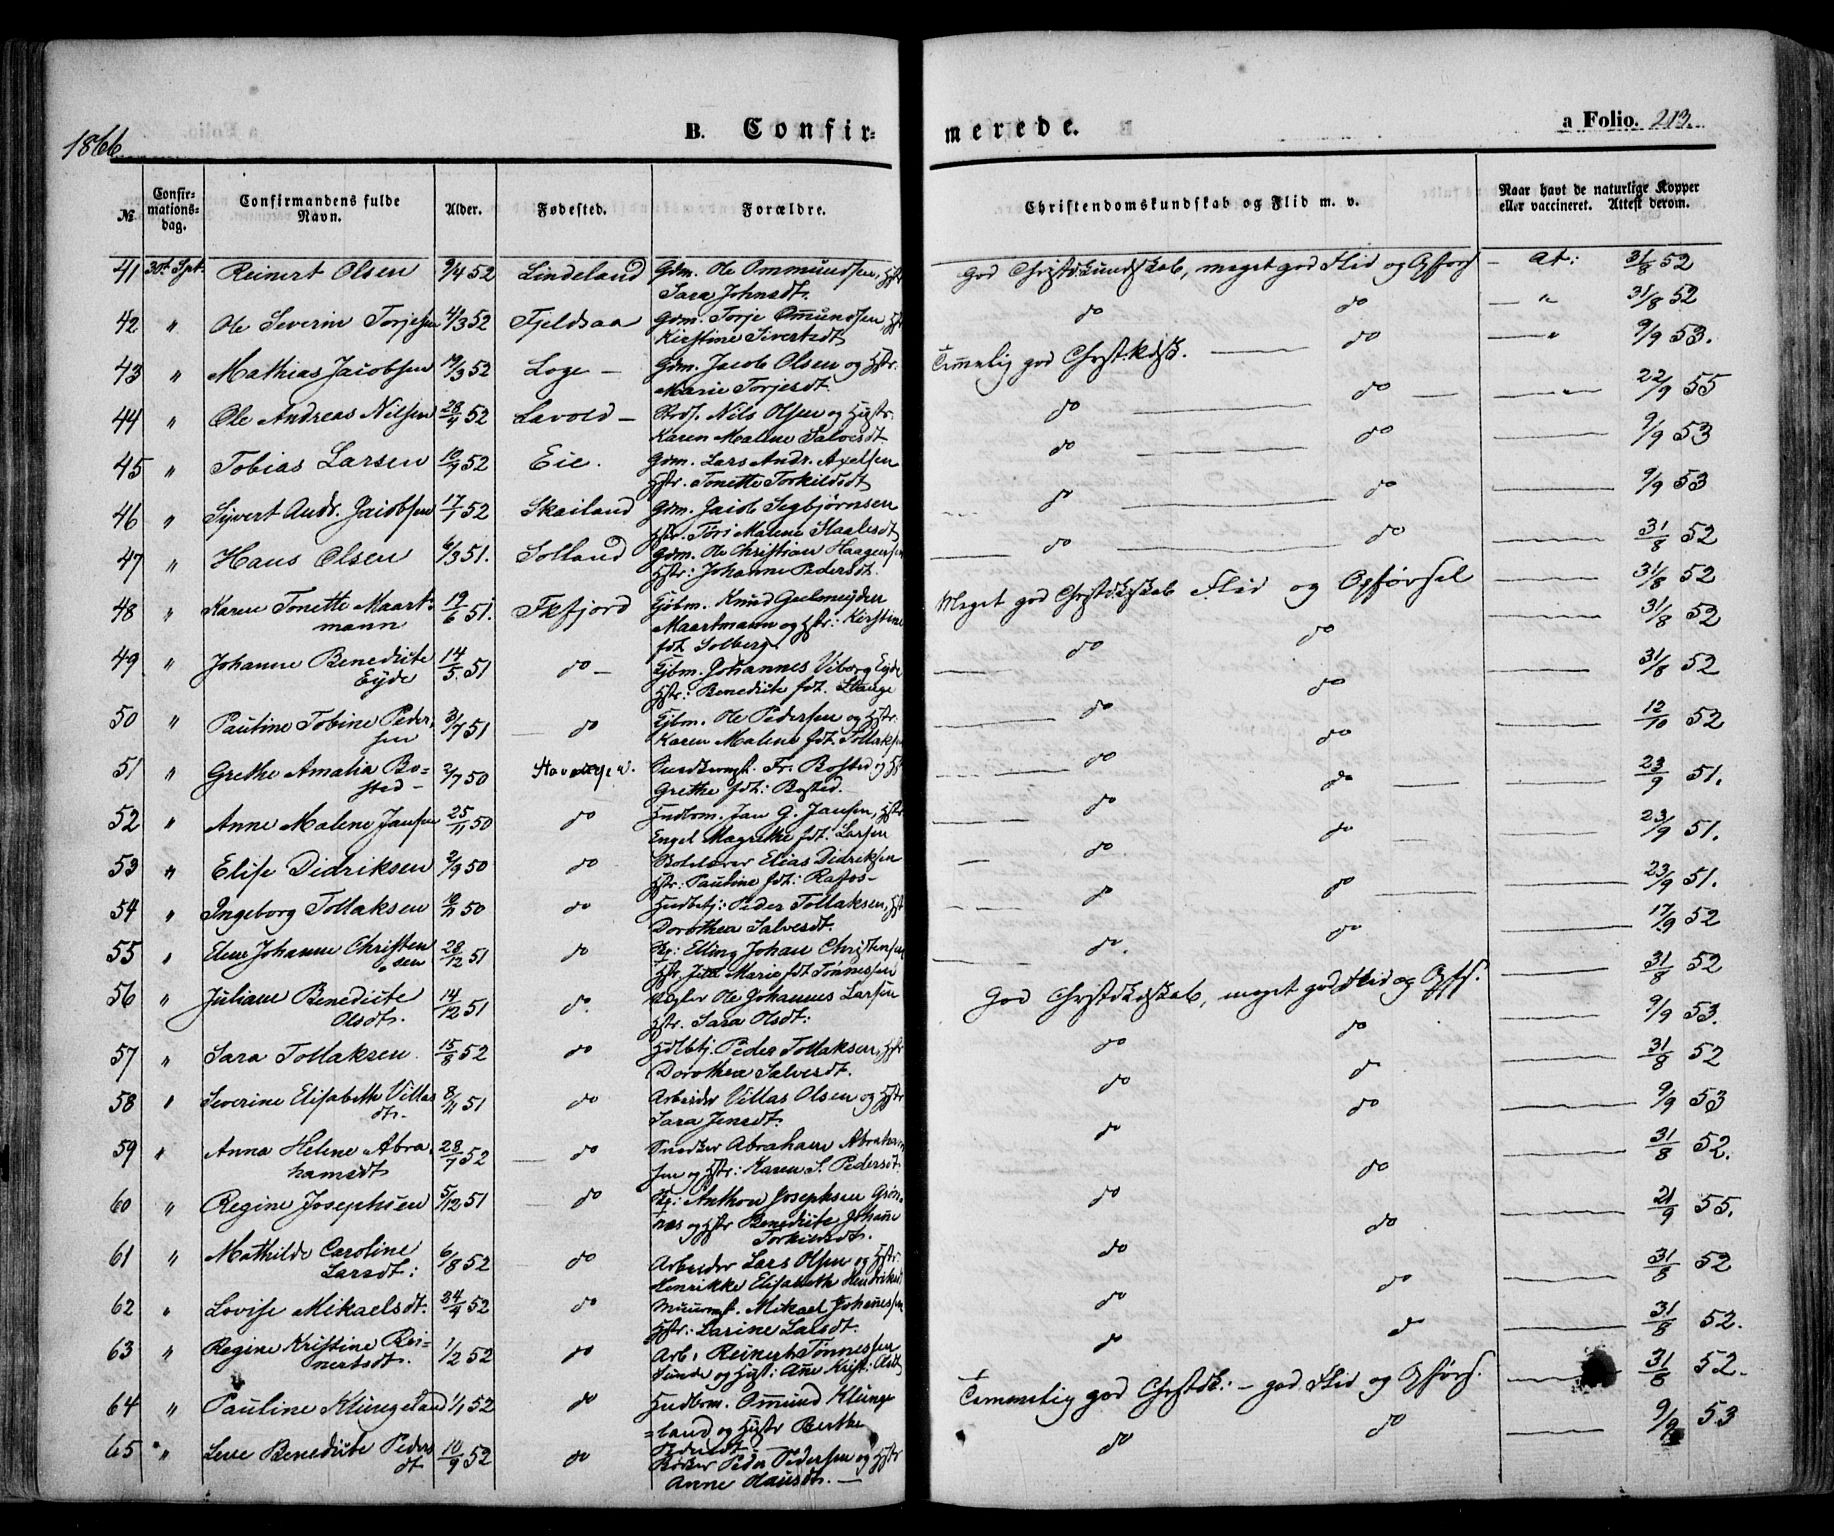 1866
B. Confir-
merede.
a Folio. 213.
No
Confir-
mations-
dag.
Confirmandens fulde
Navn.
Alder.
Fødested.
Forældre.
Christendomskundskab og Flid m. v.
Naar havt de naturlige Kopper
eller vaccineret. Attest derom.
41 30t Spt. Reinert Olsen 9/4 52 Lindeland Gdm. Ole Ommundsen, Hstr
Sara Johnsdt.
God Christdkundskab, meget god Flid og Opførs — At: 31/8 52
42 " Ole Severin Torjesen 4/3 52 Fjeldsaa Gdm. Torje Omundsen, Hstr
Kirstine Sivertsdt
do do — " 31/8 52
43 " Mathias Jacobsen 19/3 52 Loge — Gdm. Jacob Olsen og Hstr:
Marie Torjesdt.
Temmelig god Chrst.kdsk. — do — " 9/9 53.
44 " Ole Andreas Nilsen 28/4 52 Lavold — Nils Olsen og Hstr:
Karen Malene Salvesdt
do — do — " 22/9 55
45 " Tobias Larsen 10/9 52 Eie. Gdm. Lars Andr. Axelsen
Hstr. Tonette Torkildsdt
do — do — 9/9 53
46 " Syvert Andr. Jacobsen 17/7 52 Skailand Gdm. Jacob Segbjørnsen
Hstr. Tori Malene Staalesdt
do — do — 9/9 53
47 " Hans Olsen 6/3 51. Solland Gdm. Ole Christian Haagensen
Hstr: Johanne Pedersdt.
— do — do — 31/8 52
48 " Karen Tonette Maart-
mann 19/6 51. Ekfjord Gjbm. Knud Geelmeyden
Maartmann og Hstr: Kirstine
fdt Solberg.
Meget god Chrstdkskab Flid og Opførsel — 31/8 52
49 " Johanne Benedicte
Eyde 14/5 51 do — Gjbm. Johannes Viborg Eyde
Hstr: Benedicte fdt. Stange
— do do — 31/8 52
50 " Pauline Tobine Peder-
sen 3/7 51 do Gjbm. Ole Pedersen og Hstr:
Karen Malene fdt. Tollaksen
— do do — 31/8 52
51 " Grethe Amalia Bo-
sted — 2/7 50 Stavanger. Fr. Bosted og Hst
Grethe fdt: Bosted.
— do do — 12/10 52
52 " Anne Malene Jansen 25/11 50 do Jan G. Jansen, Hstr
Engel Magrethe fdt. Larsen
— do do — 23/9 51.
53 " Elise Didriksen 2/9 50 do Elias Didriksen
Hstr: Pauline fdt: Rafos —
— do. do — 23/9 51.
54 " Ingeborg Tollaksen 10/11 50 do Peder Tollaksen, Hst
Dorothea Salvesdt.
— do do — 23/9 51.
55 " Elene Johanne Christen
sen 28/12 51 do Elling Johan Christensen
Hstr. Marie fdt. Tønnessen
— do. do — 17/9 52
56 " Juliane Benedicte
Olsdt. 14/12 51 do. Ole Johannes Larsen
Hstr. Sara Olsdt:
God Chrstdkdskab, meget god Flid og Opfs. 31/8 52
57 " Sara Tollaksen 15/8 52 do Peder Tollaksen, Hstr
Dorothea Salvesdt.
do do — 9/9 53.
58 " Severine Elisabeth Villas
dt. 8/11 51 do Arbeider Villas Olsen og Hstr
Sara Jensdt.
do do — 31/8 52
59 " Anna Helene Abra
hamsdt 28/7 52 do Snedker Abraham Abraham
sen og Hstr: Karen S. Pedersdt.
do do — 9/9 53
60 " Regine Josephsen 5/12 51 do Anthon Josephsen Grøn-
næs og Hstr Benedicte Johane
Torkildsdt.
do do — 31/8 52.
61 " Mathilde Caroline
Larsdt: 6/8 52 do Arbeider Lars Olsen og Hstr:
Henrikke Elisabeth Hendriksdt
do do — 21/9 55.
62 " Lovise Mikaelsdt. 24/9 52 do Mikael Johanessen
Hstr: Larine Larsdt.
do do — 31/8 52
63 " Regine Kristine Rei-
nertsdt. 1/2 52 do Arb. Reinert Tønnessen
Sunde og Hust: Ane Krist: Olsdt
do do — 31/8 52.
64 " Pauline Klungeland 1/1 52 do Omund Klunge
=land og Hstr Berthe
Pedersdt —
Temmelig god Chrstdk: — god Flid og Opførs. — 31/8 52.
65 " Lene Benedicte Peders
dt 10/9 52 do Peder Pedersen og Hstr
Anne Hansdt. —
do do — 9/9 53